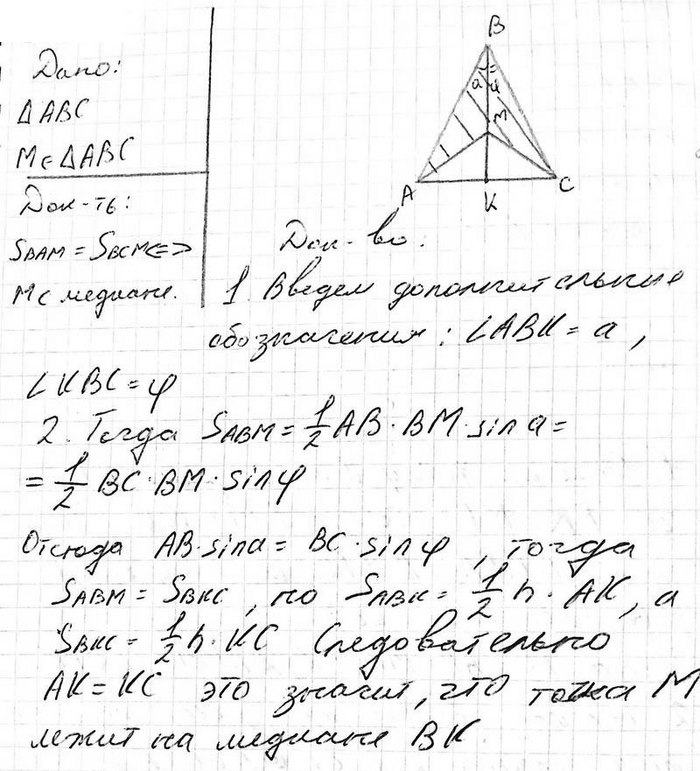 Дано:
ΔABC
M∈ΔABC
Док-ть:
S_BAM = S_BCM <=>
M∈ медиане.
B
a φ
M
A K C
Док-во:
1. Введем дополнительные
обозначения: ∠ABK = a,
∠KBC = φ
2. Тогда S_ABM = 1/2 AB · BM · sin a =
= 1/2 BC · BM · sin φ
Отсюда AB · sin a = BC · sin φ, тогда
S_ABM = S_BKC, но S_ABK = 1/2 h · AK, а
S_BKC = 1/2 h · KC Следовательно
AK = KC это значит, что точка M
лежит на медиане BK.